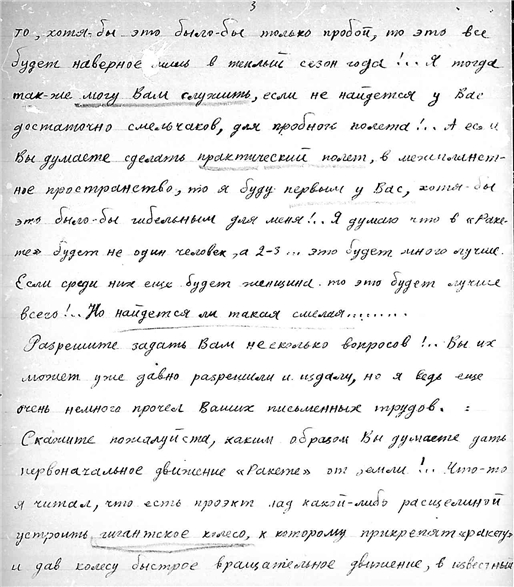 3
то, хотя-бы это было-бы только пробой, то это все
будет наверное лишь в теплый сезон года!.. Я тогда
так-же могу Вам служить, если не найдется у Вас
достаточно смельчаков, для пробного полета!.. А если
Вы думаете сделать практический полет, в межпланет-
ное пространство, то я буду первым у Вас, хотя-бы
это было-бы гибельным для меня!.. Я думаю что в «Раке-
те» будет не один человек, а 2-3... это будет много лучше.
Если среди них еще будет женщина то это будет лучше
всего!.. Но найдется ли такая смелая.........
Разрешите задать Вам несколько вопросов!.. Вы их
может уже давно разрешили и издали, но я ведь еще
очень немного прочел Ваших письменных трудов. :
Скажите пожалуйста, каким образом Вы думаете дать
первоначальное движение «Ракете» от земли!.. Что-то
я читал, что есть проэкт над какой-либо расщелиной
устроить гигантское колесо, к которому прикрепят «ракету»
и дав колесу быстрое вращательное движение, в известный